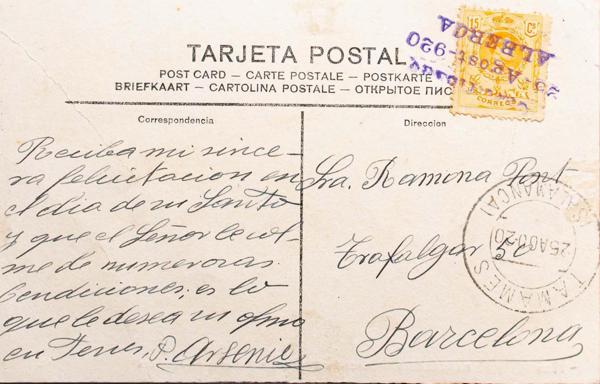 TARJETA POSTAL
POST CARD — CARTE POSTALE — POSTKARTE
BRIEFKAART — CARTOLINA POSTALE — ОТКРЫТОЕ ПИС
15 Cs
CORREOS
AGOS 920
ALBERCA
Correspondencia
Reciba mi since-
ra felicitacion en
el dia de su Santo
y que el Señor le col-
me de numerosas
bendiciones; es lo
que le desea su afmo
en Jesus, P. Arsenio
Direccion
Sra. Ramona Pont
Trafalgar 50
Barcelona
TAMAMES (SALAMANCA)
25 AGO 20